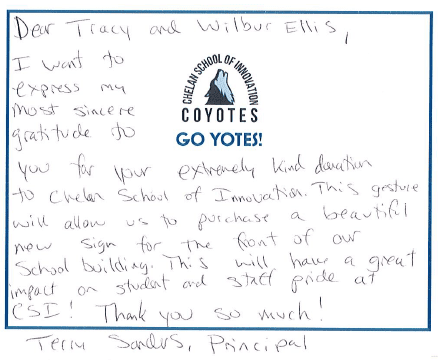 Dear Tracy and Wilbur Ellis,
I want to
express my
most sincere
gratitude to
CHELAN SCHOOL OF INNOVATION
COYOTES
GO YOTES!
you for your extremely kind donation
to Chelan School of Innovation. This gesture
will allow us to purchase a beautiful
new sign for the front of our
school building. This will have a great
impact on student and staff pride at
CSI! Thank you so much!
Terry Sanders, Principal